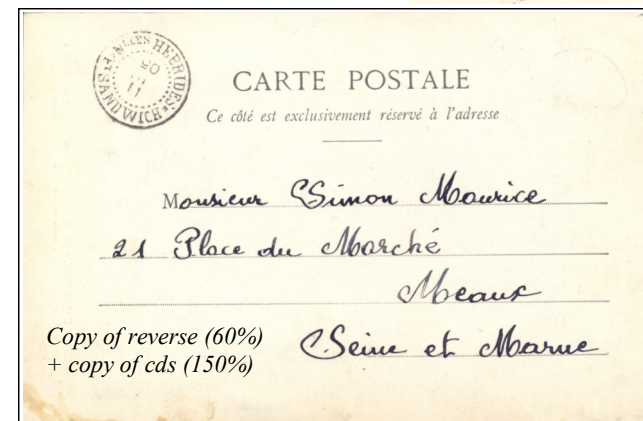 Pt SANDWICH Nlles HEBRIDES
11
05
CARTE POSTALE
Ce côté est exclusivement réservé à l'adresse
Monsieur Simon Maurice
21 Place du Marché
Meaux
Seine et Marne
Copy of reverse (60%)
+ copy of cds (150%)